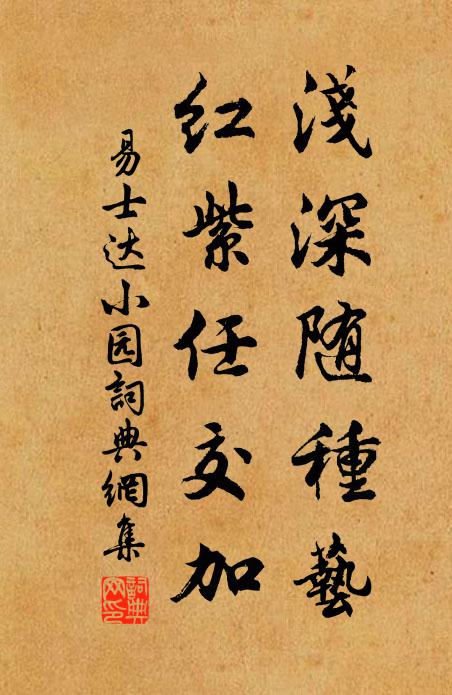 淺深随種藝
紅紫任交加
易士达小园詞典網集
詞典
网印